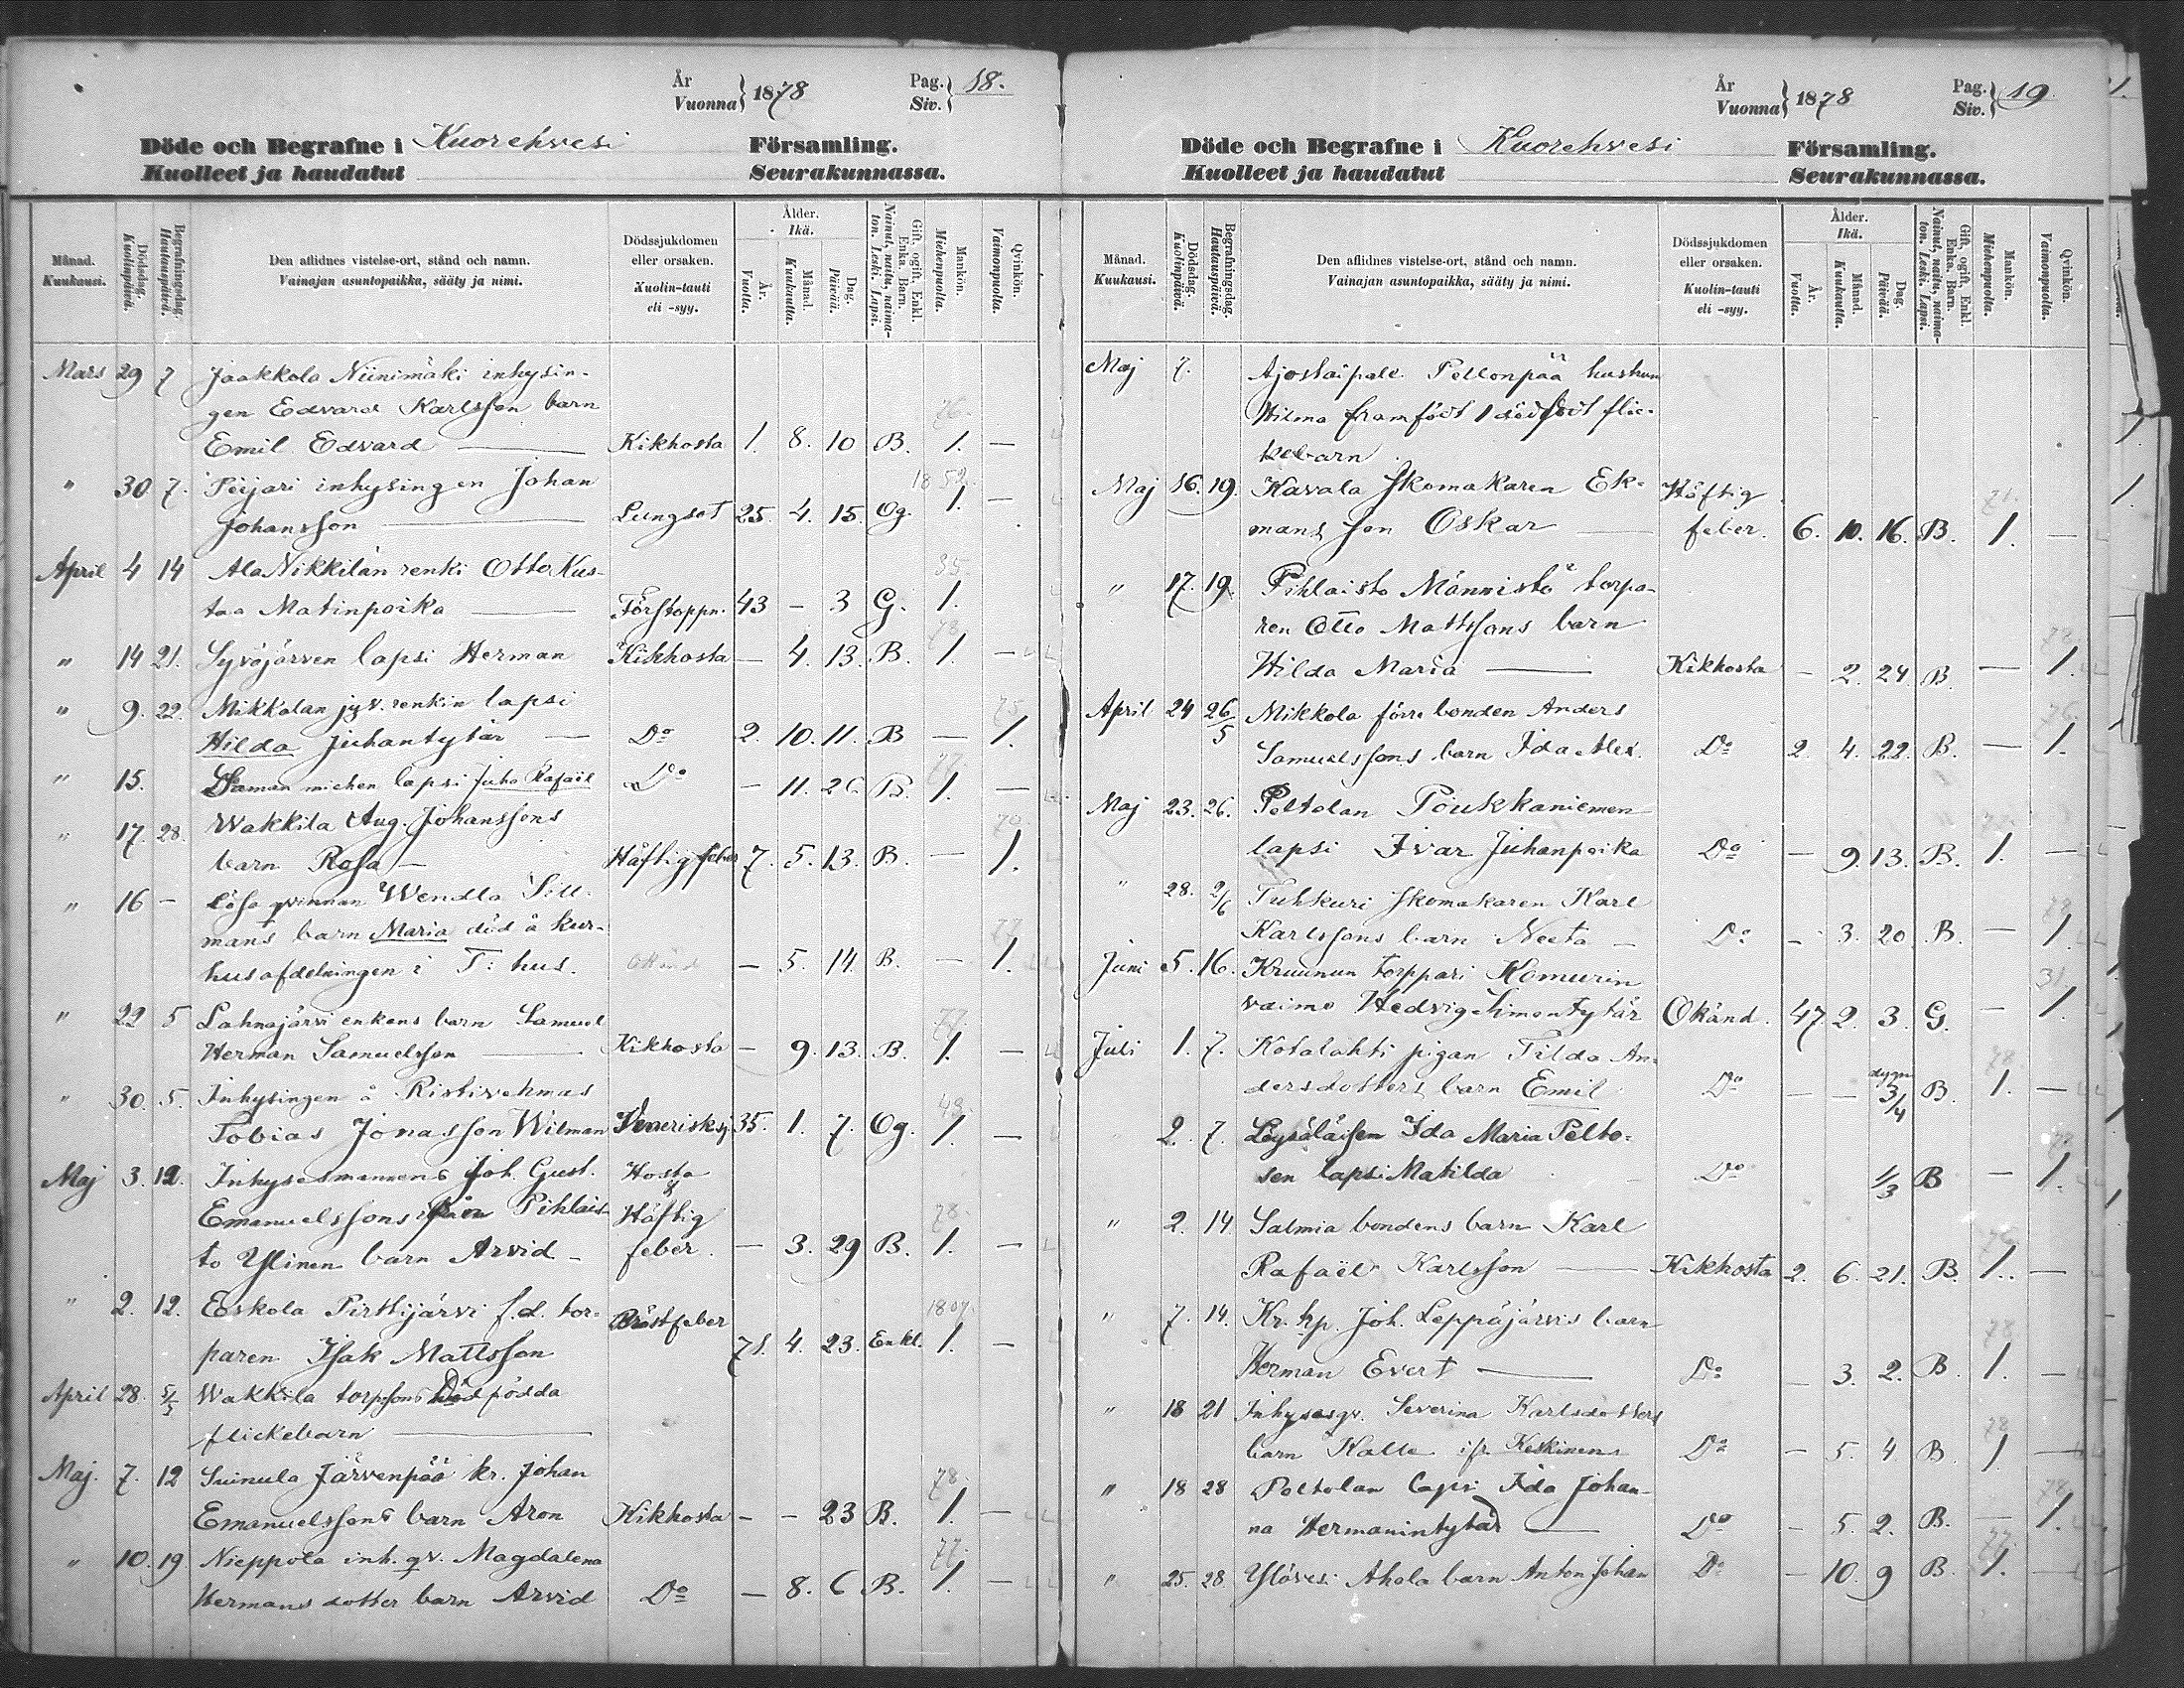 År
Vuonna } 1878
Pag.
Siv. } 18.
Döde och Begrafne i Kuorehvesi Församling.
Kuolleet ja haudatut Seurakunnassa.
Månad. Kuukausi.
Dödsdag. Kuolinpäivä.
Begrafningsdag. Hautauspäivä.
Den aflidnes vistelse-ort, stånd och namn.
Vainajan asuntopaikka, sääty ja nimi.
Dödssjukdomen eller orsaken.
Kuolin-tauti eli -syy.
Ålder. Ikä.
År. Vuotta.
Månad. Kuukautta.
Dag. Päivää.
Gift, ogift, Enkl. Enka. Barn.
Nainut, naitu, naimaton. Leski. Lapsi.
Mankön. Miehenpuolta.
Qvinkön. Vaimonpuolta.
Mars 29 7 Jaakkola Niinimäki inhysin-
gen Edvard Karlsson barn 76.
Emil Edvard — Kikhosta 1. 8. 10 B. 1. —
" 30 7. Peijari inhysingen Johan 1852.
Johansson — Lungsot 25. 4. 15. Og. 1. —
April 4 14 Ala Nikkilän renki Otto Kus- 35.
taa Matinpoika — Förstoppn. 43 — 3 G. 1.
" 14 21. Syväjärven lapsi Herman Kikhosta — 4. 13. B. 78. 1. —
" 9. 22. Mikkolan jyv. renkin lapsi 75.
Hilda Juhantytär — Do 2. 10. 11. B — 1.
" 15. miehen lapsi Juho Rafaël Do — 11. 26. B. 77. 1. —
" 17. 28. Wakkila Aug. Johanssons 70.
barn Rosa — Häftig feber 7. 5. 13. B. — 1.
" 16 — Lösa qvinnan Wendla Sill-
mans barn Maria död å kur- 77.
husafdelningen i T: hus. Okänd — 5. 14. B. — 1.
" 22 5 Lahnajärvi enkans barn Samuel 77.
Herman Samuelsson — Kikhosta — 9. 13. B. 1. —
" 30. 5. Inhysingen å Ristivehmas 43.
Tobias Jonasson Wilman Venerisksj. 35. 1. 7. Og. 1. —
Maj 3. 12. Inhysesmannens Joh. Gust. Hosta
Emanuelssons från Pihlais- & Häftig 78.
to Ylinen barn Arvid — feber. — 3. 29 B. 1. —
" 2. 12. Eskola Pirttijärvi f.d. tor- Bröstfeber 1807.
paren Isak Mattsson 71. 4. 23. Enkl. 1. —
April 28. 5/5 Wakkila torp.sons Dödfödda
flickebarn —
Maj. 7. 12 Suinula Järvenpää kr. Johan 78.
Emanuelssons barn Aron Kikhosta — — 23 B. 1. —
" 10. 19 Nieppola inh. qv. Magdalena 77.
Hermansdotter barn Arvid Do — 8. 6 B. 1. —
År
Vuonna } 1878
Pag.
Siv. } 19.
Döde och Begrafne i Kuorehvesi Församling.
Kuolleet ja haudatut Seurakunnassa.
Månad. Kuukausi.
Dödsdag. Kuolinpäivä.
Begrafningsdag. Hautauspäivä.
Den aflidnes vistelse-ort, stånd och namn.
Vainajan asuntopaikka, sääty ja nimi.
Dödssjukdomen eller orsaken.
Kuolin-tauti eli -syy.
Ålder. Ikä.
År. Vuotta.
Månad. Kuukautta.
Dag. Päivää.
Gift, ogift, Enkl. Enka. Barn.
Nainut, naitu, naimaton. Leski. Lapsi.
Mankön. Miehenpuolta.
Qvinkön. Vaimonpuolta.
Maj 7. Ajostaipale Pellonpää hushun
Hilma framfödt 1 dödfödt flic-
kebarn
Maj 16. 19. Kavala Skomakaren Ek- Häftig 71.
mans son Oskar — feber. 6. 10. 16. B. 1. —
" 17. 19. Pihlaisto Männistö torpa-
ren Otto Mattssons barn 78.
Hilda Maria — Kikhosta — 2. 24. B. — 1.
April 24 26/5 Mikkola förre bonden Anders 76.
Samuelssons barn Ida Alex. Do 2. 4. 22. B. — 1.
Maj 23. 26. Peltolan Poukkaniemen
lapsi Ivar Juhanpoika Do — 9. 13. B. 1. —
" 28. 2/6 Tuhkuri Skomakaren Karl
Karlssons barn Neeta — Do — 3. 20 B. — 1.
Juni 5. 16. Kruunun torppari Komurin 31.
vaimo Hedvig Simontytär Okänd. 47. 2. 3. G. — 1.
Juli 1. 7. Kotalahti pigan Tilda An- 78.
dersdotters barn Emil Do — — dygn 3/4 B. 1. —
2. 7. Löysäläisen Ida Maria Pelto- 78.
sen lapsi Matilda Do 1/3 B — 1.
" 2. 14 Salmia bondens barn Karl 76.
Rafaël Karlsson — Kikhosta 2. 6. 21. B. 1. —
" 7. 14. Kr. tp. Joh. Leppäjärvis barn 78.
Herman Evert — Do — 3. 2. B. 1. —
" 18 21 Inhysesqv. Severina Karlsdotters 78
barn Kalle ifr. Keskinens Do — 5. 4 B. 1. —
" 18 28 Peltolan lapsi Ida Johan- 78
na Hermanintytär — Do — 5. 2. B. — 1.
" 25. 28. Ylövesi Ahola barn Anton Johan Do — 10. 9 B. 77. 1. —